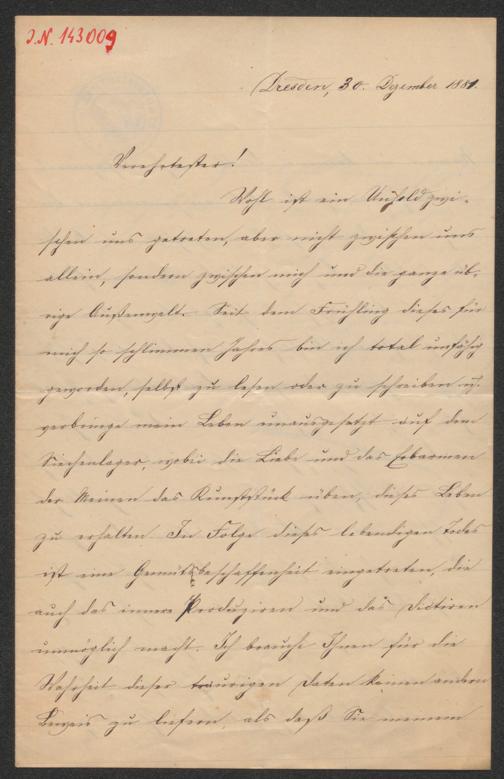 J.N. 143009
Dresden, 30. Dezember 1881.
Verehrtester!
Wohl ist ein Unhold zwi-
schen uns getreten, aber nicht zwischen uns
allein, sondern zwischen mich und die ganze üb-
rige Außenwelt. Seit dem Frühling dieses für
mich so schlimmen Jahres bin ich total unfähig
geworden, selbst zu lesen oder zu schreiben u.
verbringe mein Leben unausgesetzt auf dem
Siechenlager, wobei die Liebe und das Erbarmen
der Meinen das Kunststück üben, dieses Leben
zu erhalten. In Folge dieses lebendigen Todes
ist eine Gemütsbeschaffenheit eingetreten, die
auch das innere Produziren und das Dictiren
unmöglich macht. Ich brauche Ihnen für die
Wahrheit dieser traurigen Daten keinen andern
Beweis zu liefern, als daß Sie meinem